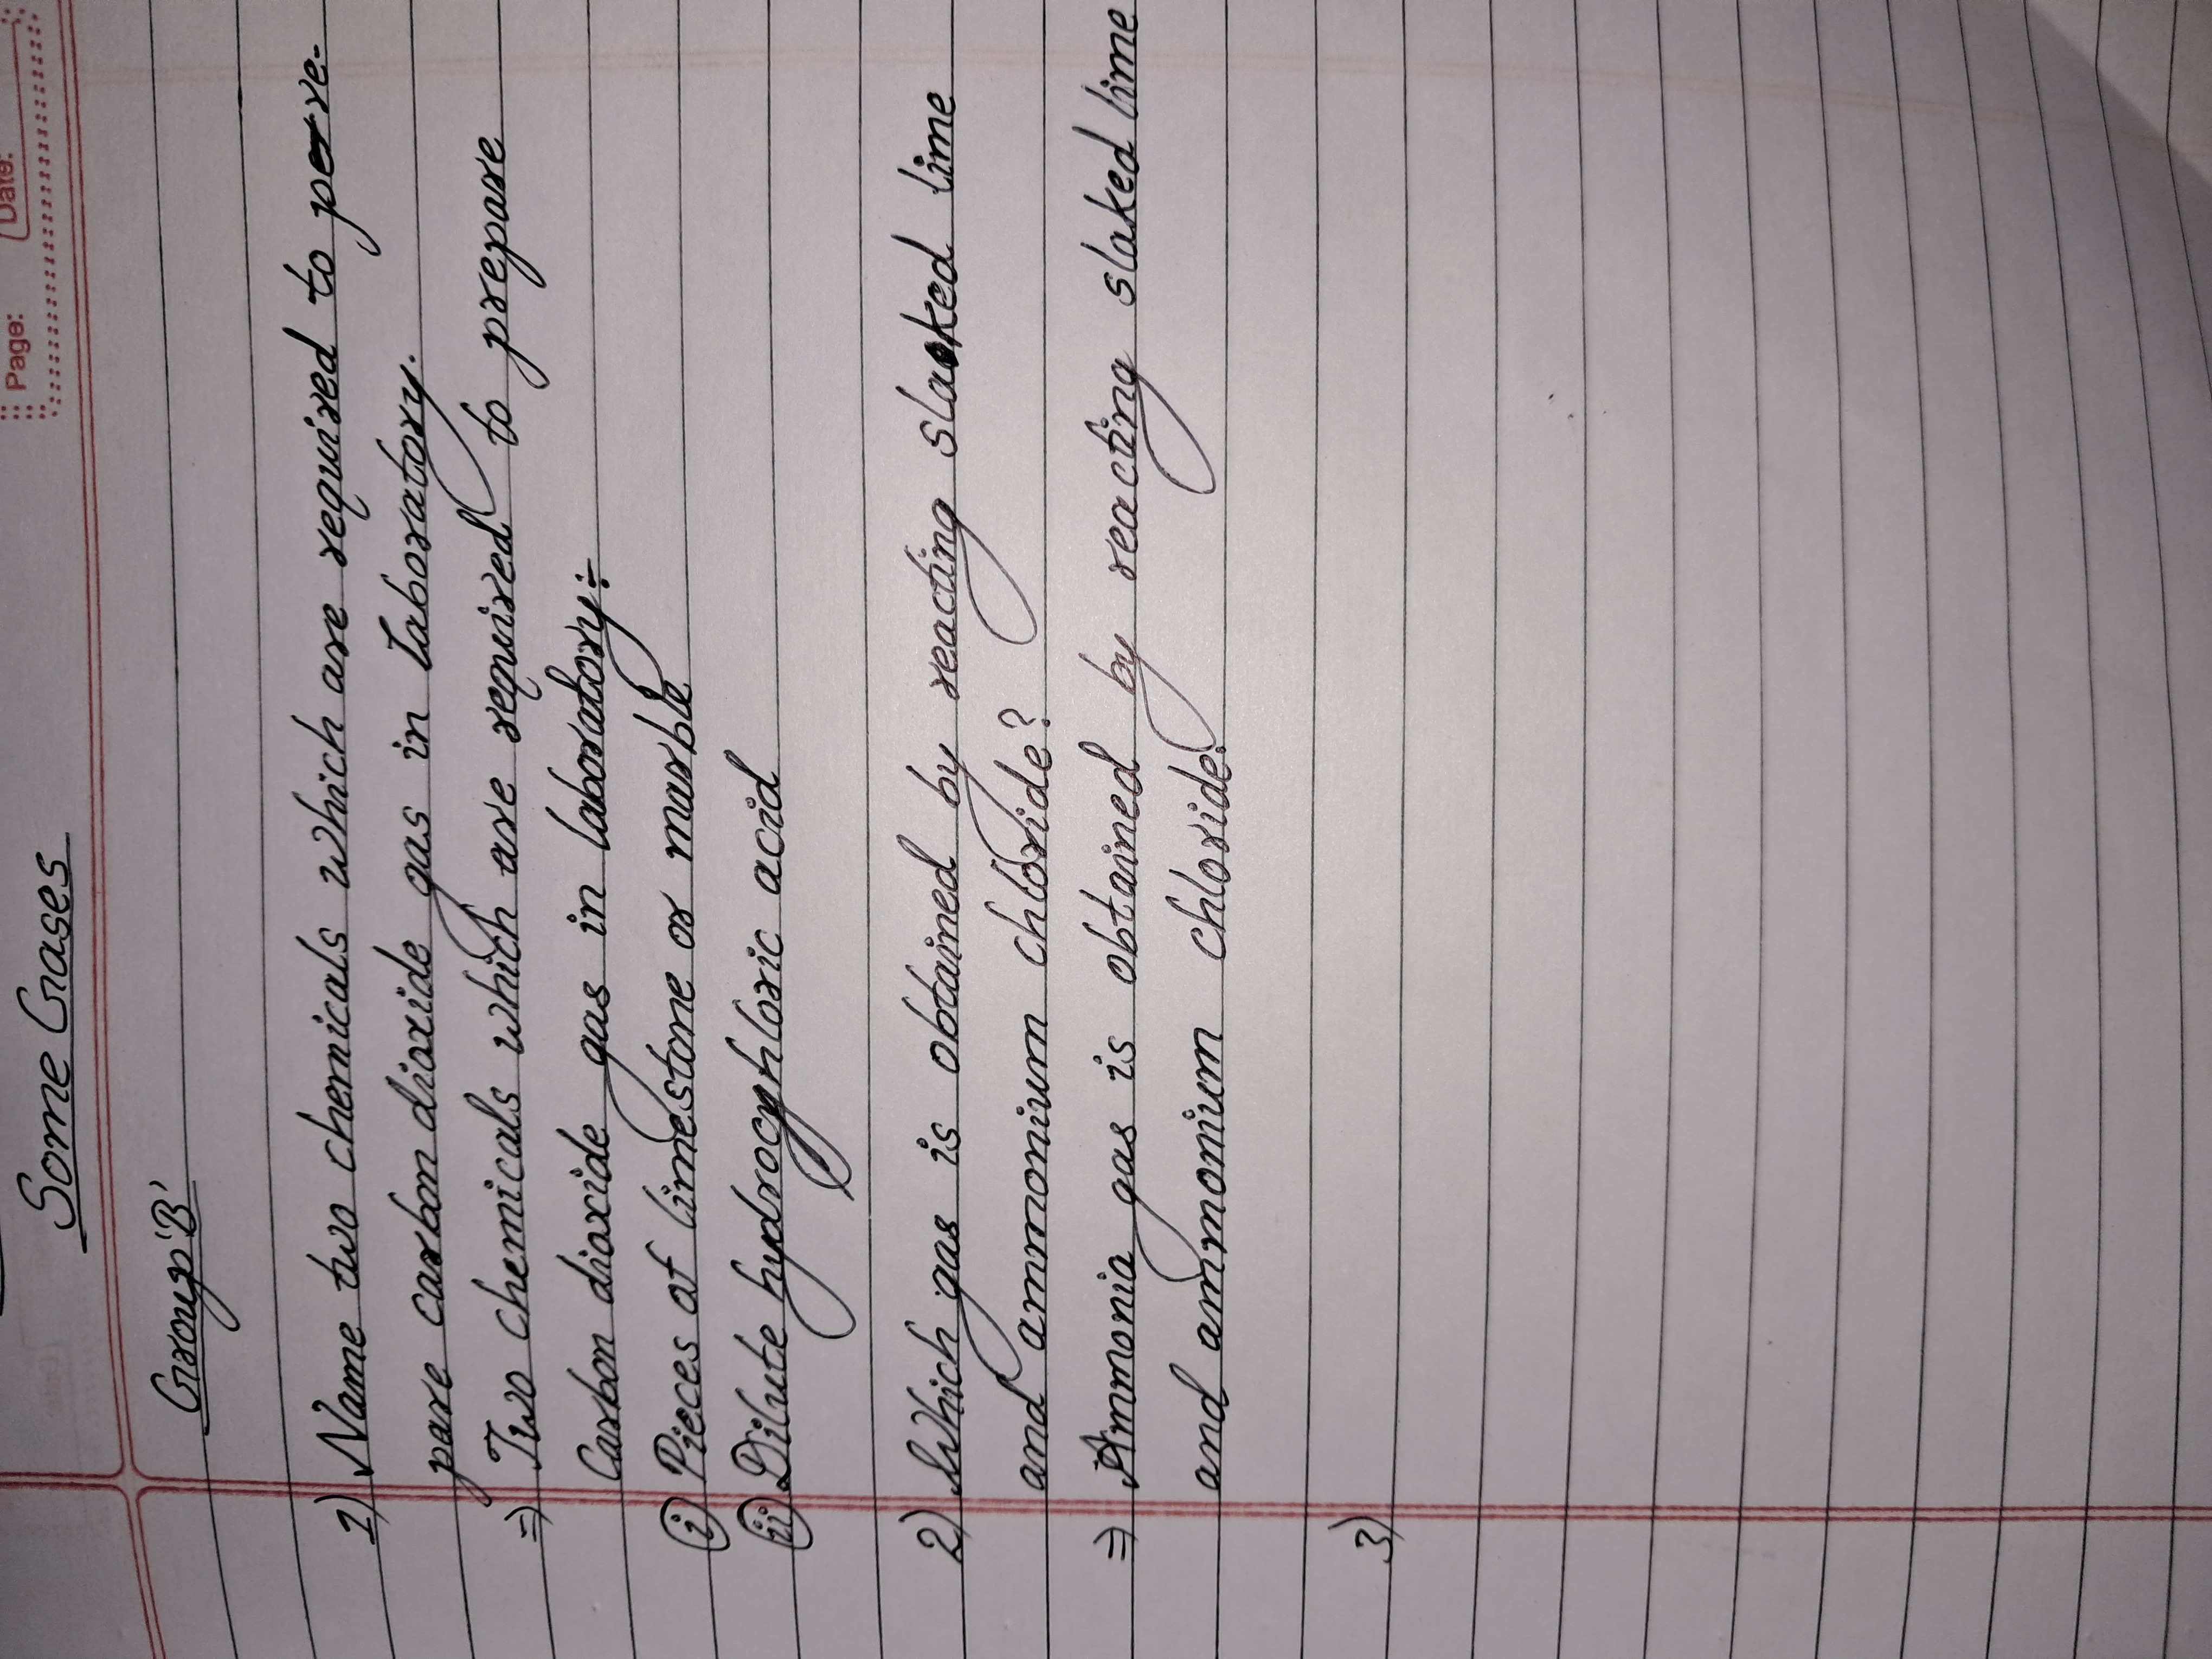 Page:
Date:
Some Gases
Group 'B'
1) Name two chemicals which are required to pre
pare carbon dioxide gas in laboratory.
=) Two chemicals which are required to prepare
Carbon dioxide gas in laboratory:
(i) Pieces of limestone or marble
(ii) Dilute hydrochloric acid
2) Which gas is obtained by reacting slaked lime
and ammonium chloride?
=) Ammonia gas is obtained by reacting slaked lime
and ammonium chloride.
3)